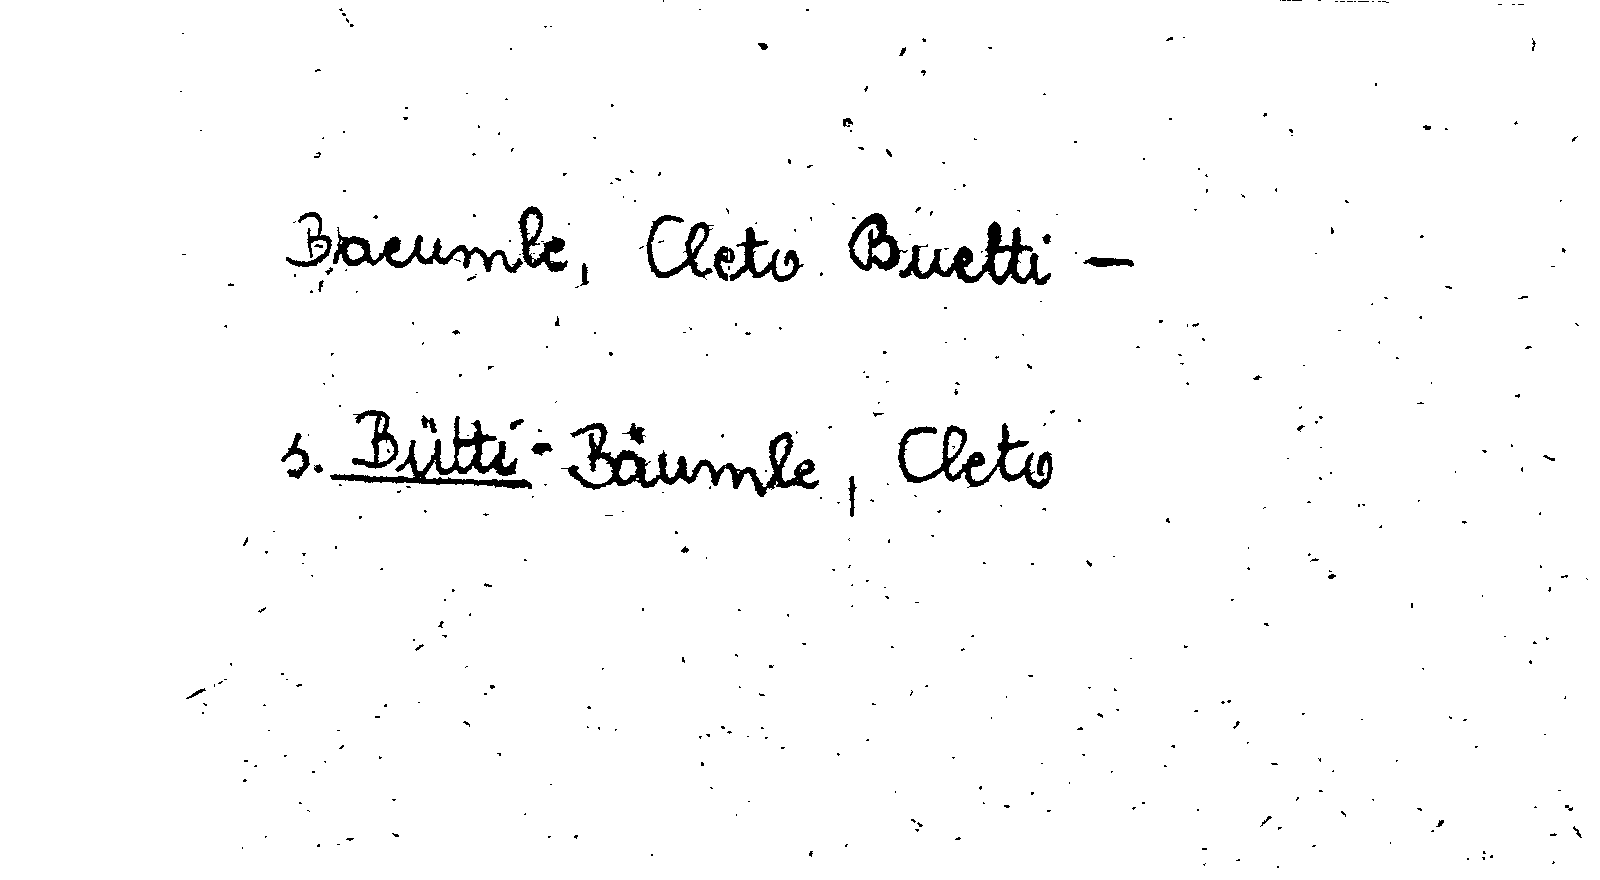 Baeumle, Cleto Buetti –
s. Bütti-Bäumle, Cleto